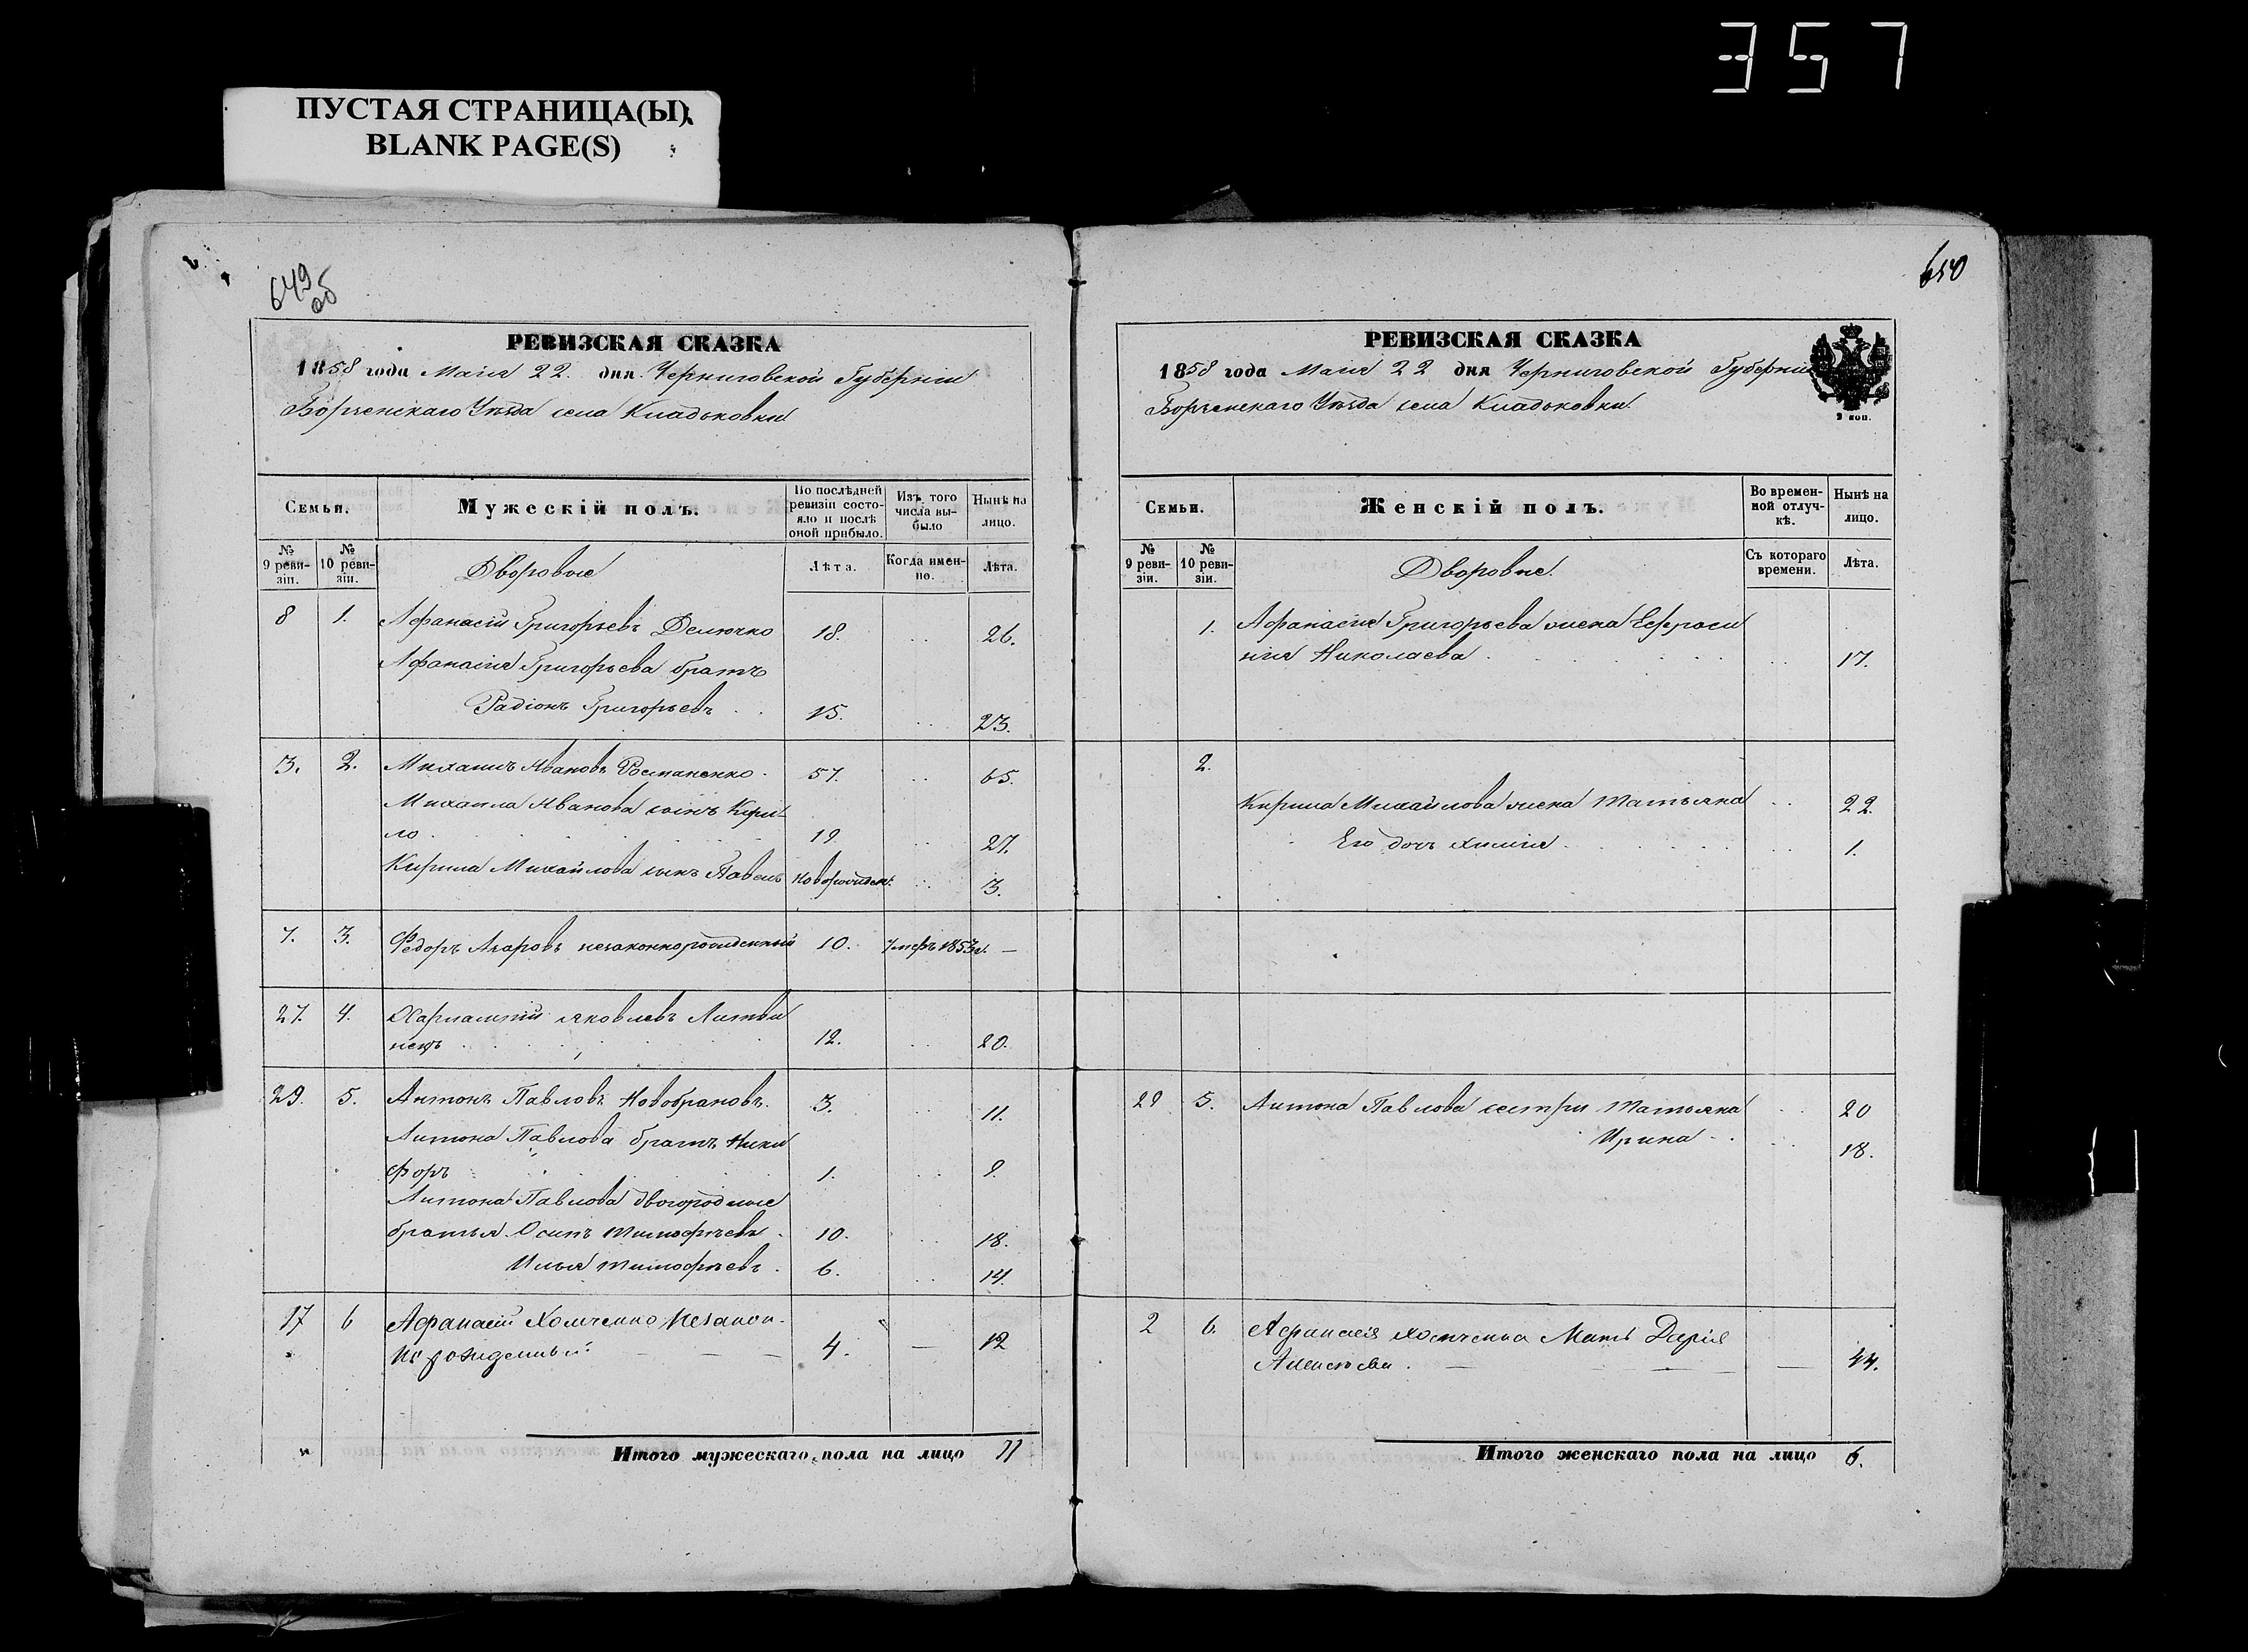 357
ПУСТАЯ СТРАНИЦА(Ы)
BLANK PAGE(S)
649
об
РЕВИЗСКАЯ СКАЗКА
1858 года Маія 22. дня Черниговской Губерніи
Борзенскаго Уѣзда села Кладьковки
Семьи.
Мужескій полъ.
По послѣдней ревизіи состояло и послѣ оной прибыло.
Изъ того числа выбыло
Нынѣ на лицо.
№ 9 ревизіи.
№ 10 ревизіи.
Дворовые
Лѣта.
Когда именно.
Лѣта.
8 1. Афанасій Григорьевъ 18. 26.
Афанасія Григорьева братъ
Радіонъ Григорьевъ 15. 23.
3. 2. Михаилъ Ивановъ 57. 65.
Михаила Иванова сынъ Кири
ло 19. 27.
Кирила Михайлова сынъ Павелъ новорожден. 3.
7. 3. Федоръ Азаровъ незаконнорожденный 10. умеръ 1853 г. —
27. 4. Харлампій Яковлевъ Литви
ненко 12. 20.
29. 5. Антонъ Павловъ Новобрановъ. 3. 11.
Антона Павлова братъ Ники
форъ 1. 9.
Антона Павлова двогородные
братья Осипъ Тимофѣевъ 10. 18.
Илья Тимофѣевъ 6. 14.
17 6 Афанасій Холченко Незакон-
норожденный 4. — 12
Итого мужескаго пола на лицо 11
650
РЕВИЗСКАЯ СКАЗКА
1858 года Маія 22 дня Черниговской Губерніи
Борзенскаго Уѣзда села Кладьковки.
2 коп.
Семьи.
Женскій полъ.
Во временной отлучкѣ.
Нынѣ на лицо.
№ 9 ревизіи.
№ 10 ревизіи.
Дворовые.
Съ котораго времени.
Лѣта.
1. Афанасія Григорьева жена Ефроси
нія Николаева 17.
2.
Кирила Михайлова жена Татьяна 22.
Его дочь 1.
29 5. Антона Павлова сестры Татьяна 20
Ирина 18.
2 6. Афанасія Холченка Мать Дарія
Алексѣева — 44.
Итого женскаго пола на лицо 6.